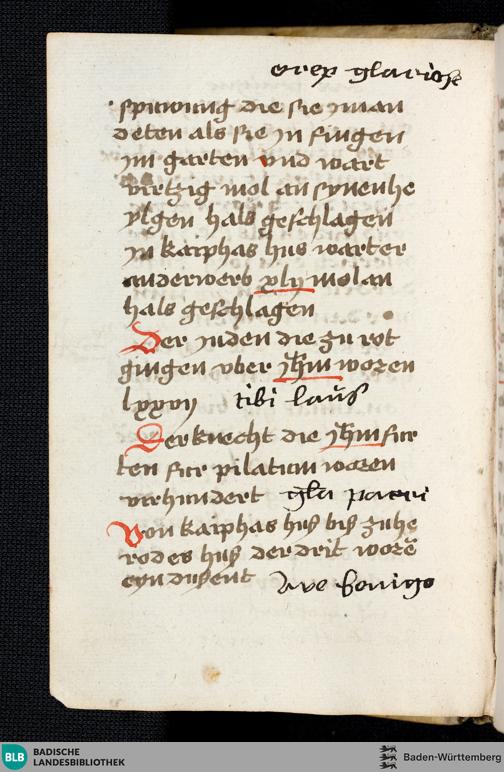 o rex gloriose
spuwung die sie yman
deten als sie yn fingen
ym garten vnd wart
virtzig mol an syn
ylgen hals geschlagen
yn kaiphas hus warter
anderwerb xlij mol an
hals geschlagen
Der yuden die zu rot
gingen vber jhm woren
lxxvij tibi laus
Der knecht die jhm fur
ten fur pilatum woren
virhundert gla patri
Von kaiphas huß biß zu he
rodes huß der drit worē
eyn dußent Ave
BLB BADISCHE
LANDESBIBLIOTHEK
Baden-Württemberg